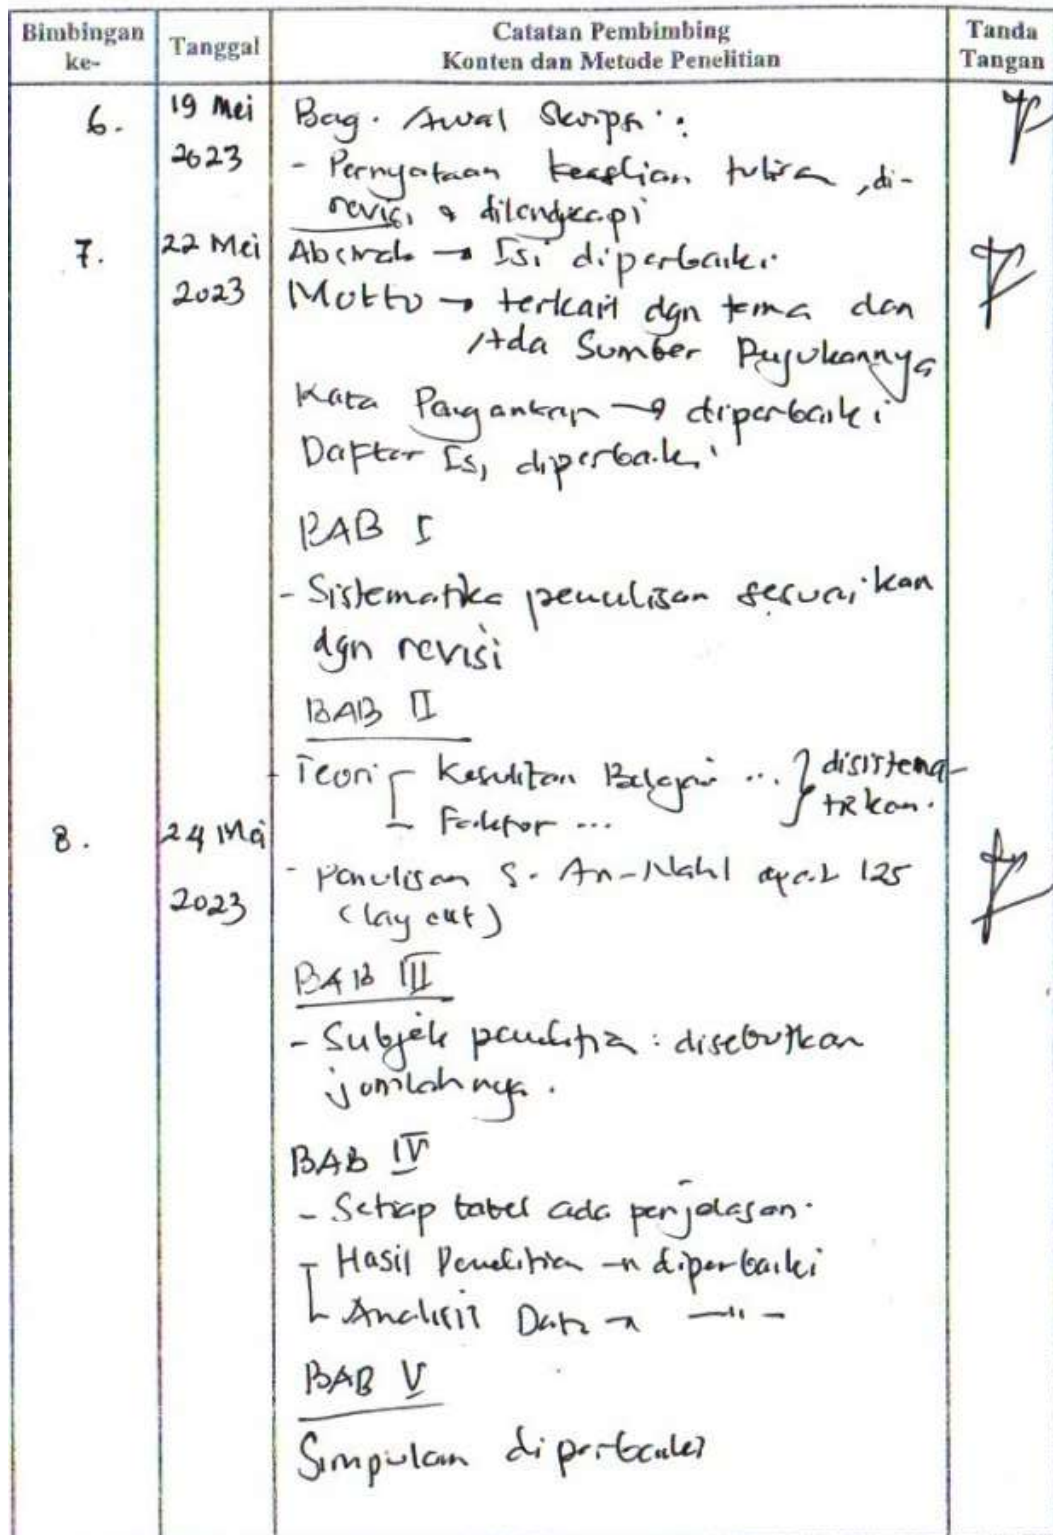 Bimbingan ke-
Tanggal
Catatan Pembimbing
Konten dan Metode Penelitian
Tanda Tangan
6.
19 Mei
2023
Bag. Awal Skripsi :
- Pernyataan keaslian tulisan, di-
revisi & dilengkapi
7.
22 Mei
2023
Abstrak → Isi diperbaiki.
Motto → terkait dgn tema dan
Ada Sumber Rujukannya
Kata Pengantar → diperbaiki
Daftar Isi diperbaiki
BAB I
- Sistematika penulisan sesuaikan
dgn revisi
BAB II
- Teori Kesulitan Belajar ... } disistema-
Faktor ... tikkan.
8.
24 Mei
2023
- Penulisan S. An-Nahl ayat 125
(lay out)
BAB III
- Subjek penelitian : disebutkan
jumlahnya.
BAB IV
- Setiap tabel ada penjelasan.
Hasil Penelitian → diperbaiki
Analisis Data → —"—
BAB V
Simpulan diperbaiki